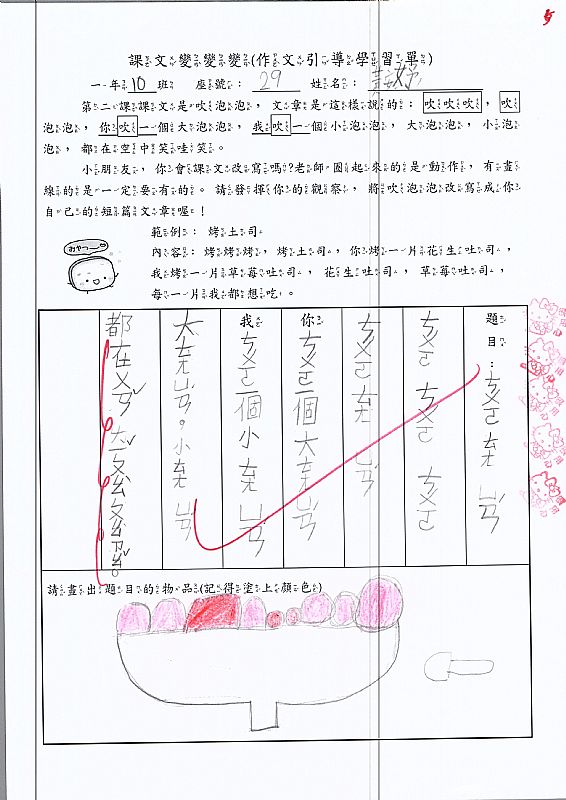 課文變變變(作文引導學習單)
一年10班 座號：29 姓名：
第二課課文是吹泡泡，文章是這樣說的：吹吹吹，吹
泡泡，你吹一個大泡泡，我吹一個小泡泡，大泡泡，小泡
泡，都在空中笑哇笑。
小朋友，你會課文改寫嗎?老師圈起來的是動作，有畫
線的是一定要有的。請發揮你的觀察，將吹泡泡改寫成你
自己的短篇文章喔！
範例：烤土司
內容：烤烤烤，烤土司，你烤一片花生吐司，
我烤一片草莓吐司，花生吐司，草莓吐司，
每一片我都想吃。
題目：ㄘㄨㄛ ㄊㄤ ㄩㄢ
ㄘㄨㄛ ㄘㄨㄛ ㄘㄨㄛ
ㄘㄨㄛ ㄊㄤ ㄩㄢ
你ㄘㄨㄛ一個大ㄊㄤ ㄩㄢ
我ㄘㄨㄛ一個小ㄊㄤ ㄩㄢ
大ㄊㄤ ㄩㄢ。小ㄊㄤ ㄩㄢ
都在ㄨㄢ
請畫出題目的物品(記得塗上顏色)